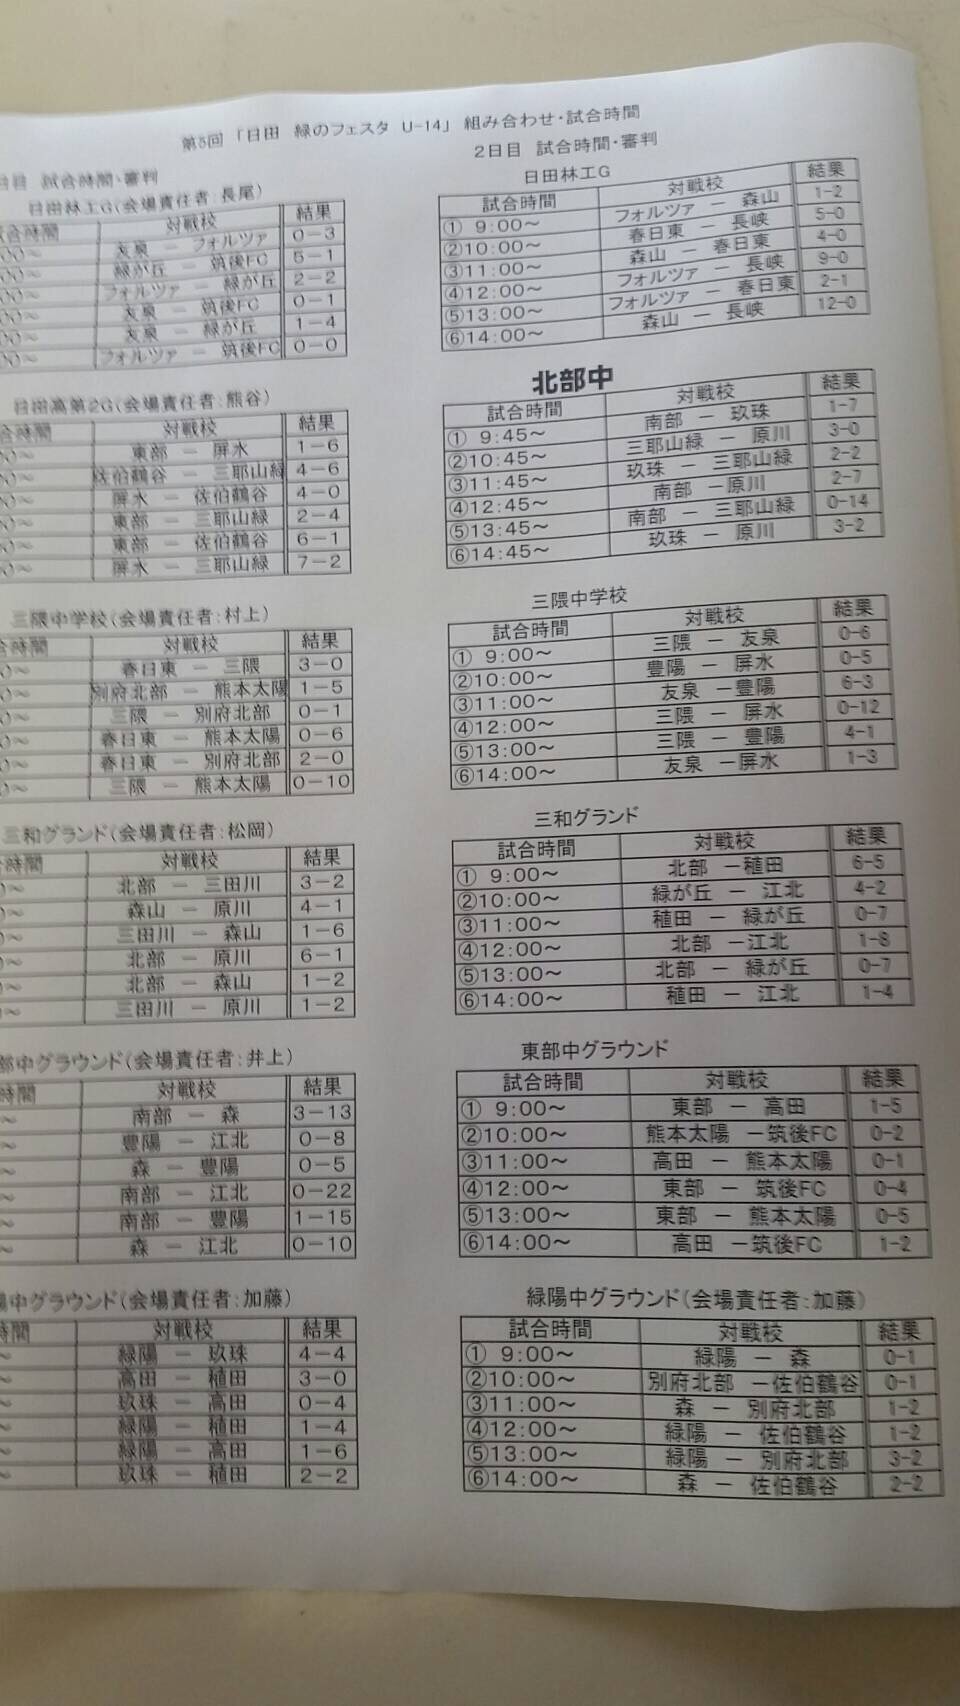 第5回 「日田 緑のフェスタ U-14」 組み合わせ・試合時間
日目 試合時間・審判
日田林工G(会場責任者:長尾)
試合時間 対戦校 結果
00~ 友泉 ー フォルツァ 0-3
00~ 緑が丘 ー 筑後FC 5-1
00~ フォルツァ ー 緑が丘 2-2
00~ 友泉 ー 筑後FC 0-1
00~ 友泉 ー 緑が丘 1-4
00~ フォルツァ ー 筑後FC 0-0
日田高第2G(会場責任者:熊谷)
合時間 対戦校 結果
0~ 東部 ー 屏水 1-6
0~ 佐伯鶴谷 ー 三耶山緑 4-6
0~ 屏水 ー 佐伯鶴谷 4-0
0~ 東部 ー 三耶山緑 2-4
0~ 東部 ー 佐伯鶴谷 6-1
0~ 屏水 ー 三耶山緑 7-2
三隈中学校(会場責任者:村上)
合時間 対戦校 結果
0~ 春日東 ー 三隈 3-0
0~ 別府北部 ー 熊本太陽 1-5
0~ 三隈 ー 別府北部 0-1
0~ 春日東 ー 熊本太陽 0-6
0~ 春日東 ー 別府北部 2-0
0~ 三隈 ー 熊本太陽 0-10
三和グランド(会場責任者:松岡)
合時間 対戦校 結果
0~ 北部 ー 三田川 3-2
~ 森山 ー 原川 4-1
~ 三田川 ー 森山 1-6
~ 北部 ー 原川 6-1
~ 北部 ー 森山 1-2
~ 三田川 ー 原川 1-2
部中グラウンド(会場責任者:井上)
時間 対戦校 結果
~ 南部 ー 森 3-13
~ 豊陽 ー 江北 0-8
~ 森 ー 豊陽 0-5
~ 南部 ー 江北 0-22
~ 南部 ー 豊陽 1-15
~ 森 ー 江北 0-10
陽中グラウンド(会場責任者:加藤)
時間 対戦校 結果
~ 緑陽 ー 玖珠 4-4
~ 高田 ー 稙田 3-0
~ 玖珠 ー 高田 0-4
~ 緑陽 ー 稙田 1-4
~ 緑陽 ー 高田 1-6
~ 玖珠 ー 稙田 2-2
2日目 試合時間・審判
日田林工G
試合時間 対戦校 結果
① 9:00~ フォルツァ ー 森山 1-2
②10:00~ 春日東 ー 長峡 5-0
③11:00~ 森山 ー 春日東 4-0
④12:00~ フォルツァ ー 長峡 9-0
⑤13:00~ フォルツァ ー 春日東 2-1
⑥14:00~ 森山 ー 長峡 12-0
北部中
試合時間 対戦校 結果
① 9:45~ 南部 ー 玖珠 1-7
②10:45~ 三耶山緑 ー 原川 3-0
③11:45~ 玖珠 ー 三耶山緑 2-2
④12:45~ 南部 ー原川 2-7
⑤13:45~ 南部 ー 三耶山緑 0-14
⑥14:45~ 玖珠 ー 原川 3-2
三隈中学校
試合時間 対戦校 結果
① 9:00~ 三隈 ー 友泉 0-6
②10:00~ 豊陽 ー 屏水 0-5
③11:00~ 友泉 ー豊陽 6-3
④12:00~ 三隈 ー 屏水 0-12
⑤13:00~ 三隈 ー 豊陽 4-1
⑥14:00~ 友泉 ー屏水 1-3
三和グランド
試合時間 対戦校 結果
① 9:00~ 北部 ー稙田 6-5
②10:00~ 緑が丘 ー 江北 4-2
③11:00~ 稙田 ー 緑が丘 0-7
④12:00~ 北部 ー江北 1-8
⑤13:00~ 北部 ー 緑が丘 0-7
⑥14:00~ 稙田 ー 江北 1-4
東部中グラウンド
試合時間 対戦校 結果
① 9:00~ 東部 ー 高田 1-5
②10:00~ 熊本太陽 ー筑後FC 0-2
③11:00~ 高田 ー 熊本太陽 0-1
④12:00~ 東部 ー 筑後FC 0-4
⑤13:00~ 東部 ー 熊本太陽 0-5
⑥14:00~ 高田 ー筑後FC 1-2
緑陽中グラウンド(会場責任者:加藤)
試合時間 対戦校 結果
① 9:00~ 緑陽 ー 森 0-1
②10:00~ 別府北部 ー佐伯鶴谷 0-1
③11:00~ 森 ー 別府北部 1-2
④12:00~ 緑陽 ー 佐伯鶴谷 1-2
⑤13:00~ 緑陽 ー 別府北部 3-2
⑥14:00~ 森 ー 佐伯鶴谷 2-2